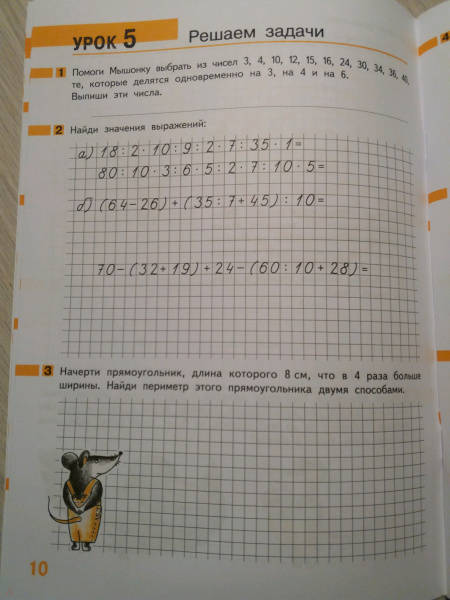 УРОК 5
Решаем задачи
1 Помоги Мышонку выбрать из чисел 3, 4, 10, 12, 15, 16, 24, 30, 34, 36, 40,
те, которые делятся одновременно на 3, на 4 и на 6.
Выпиши эти числа.
2 Найди значения выражений:
а) 18 : 2 · 10 : 9 : 2 · 7 : 35 · 1 =
80 : 10 · 3 : 6 · 5 : 2 · 7 : 10 · 5 =
б) (64 − 26) + (35 : 7 + 45) : 10 =
70 − (32 + 19) + 24 − (60 : 10 + 28) =
3 Начерти прямоугольник, длина которого 8 см, что в 4 раза больше
ширины. Найди периметр этого прямоугольника двумя способами.
10
4